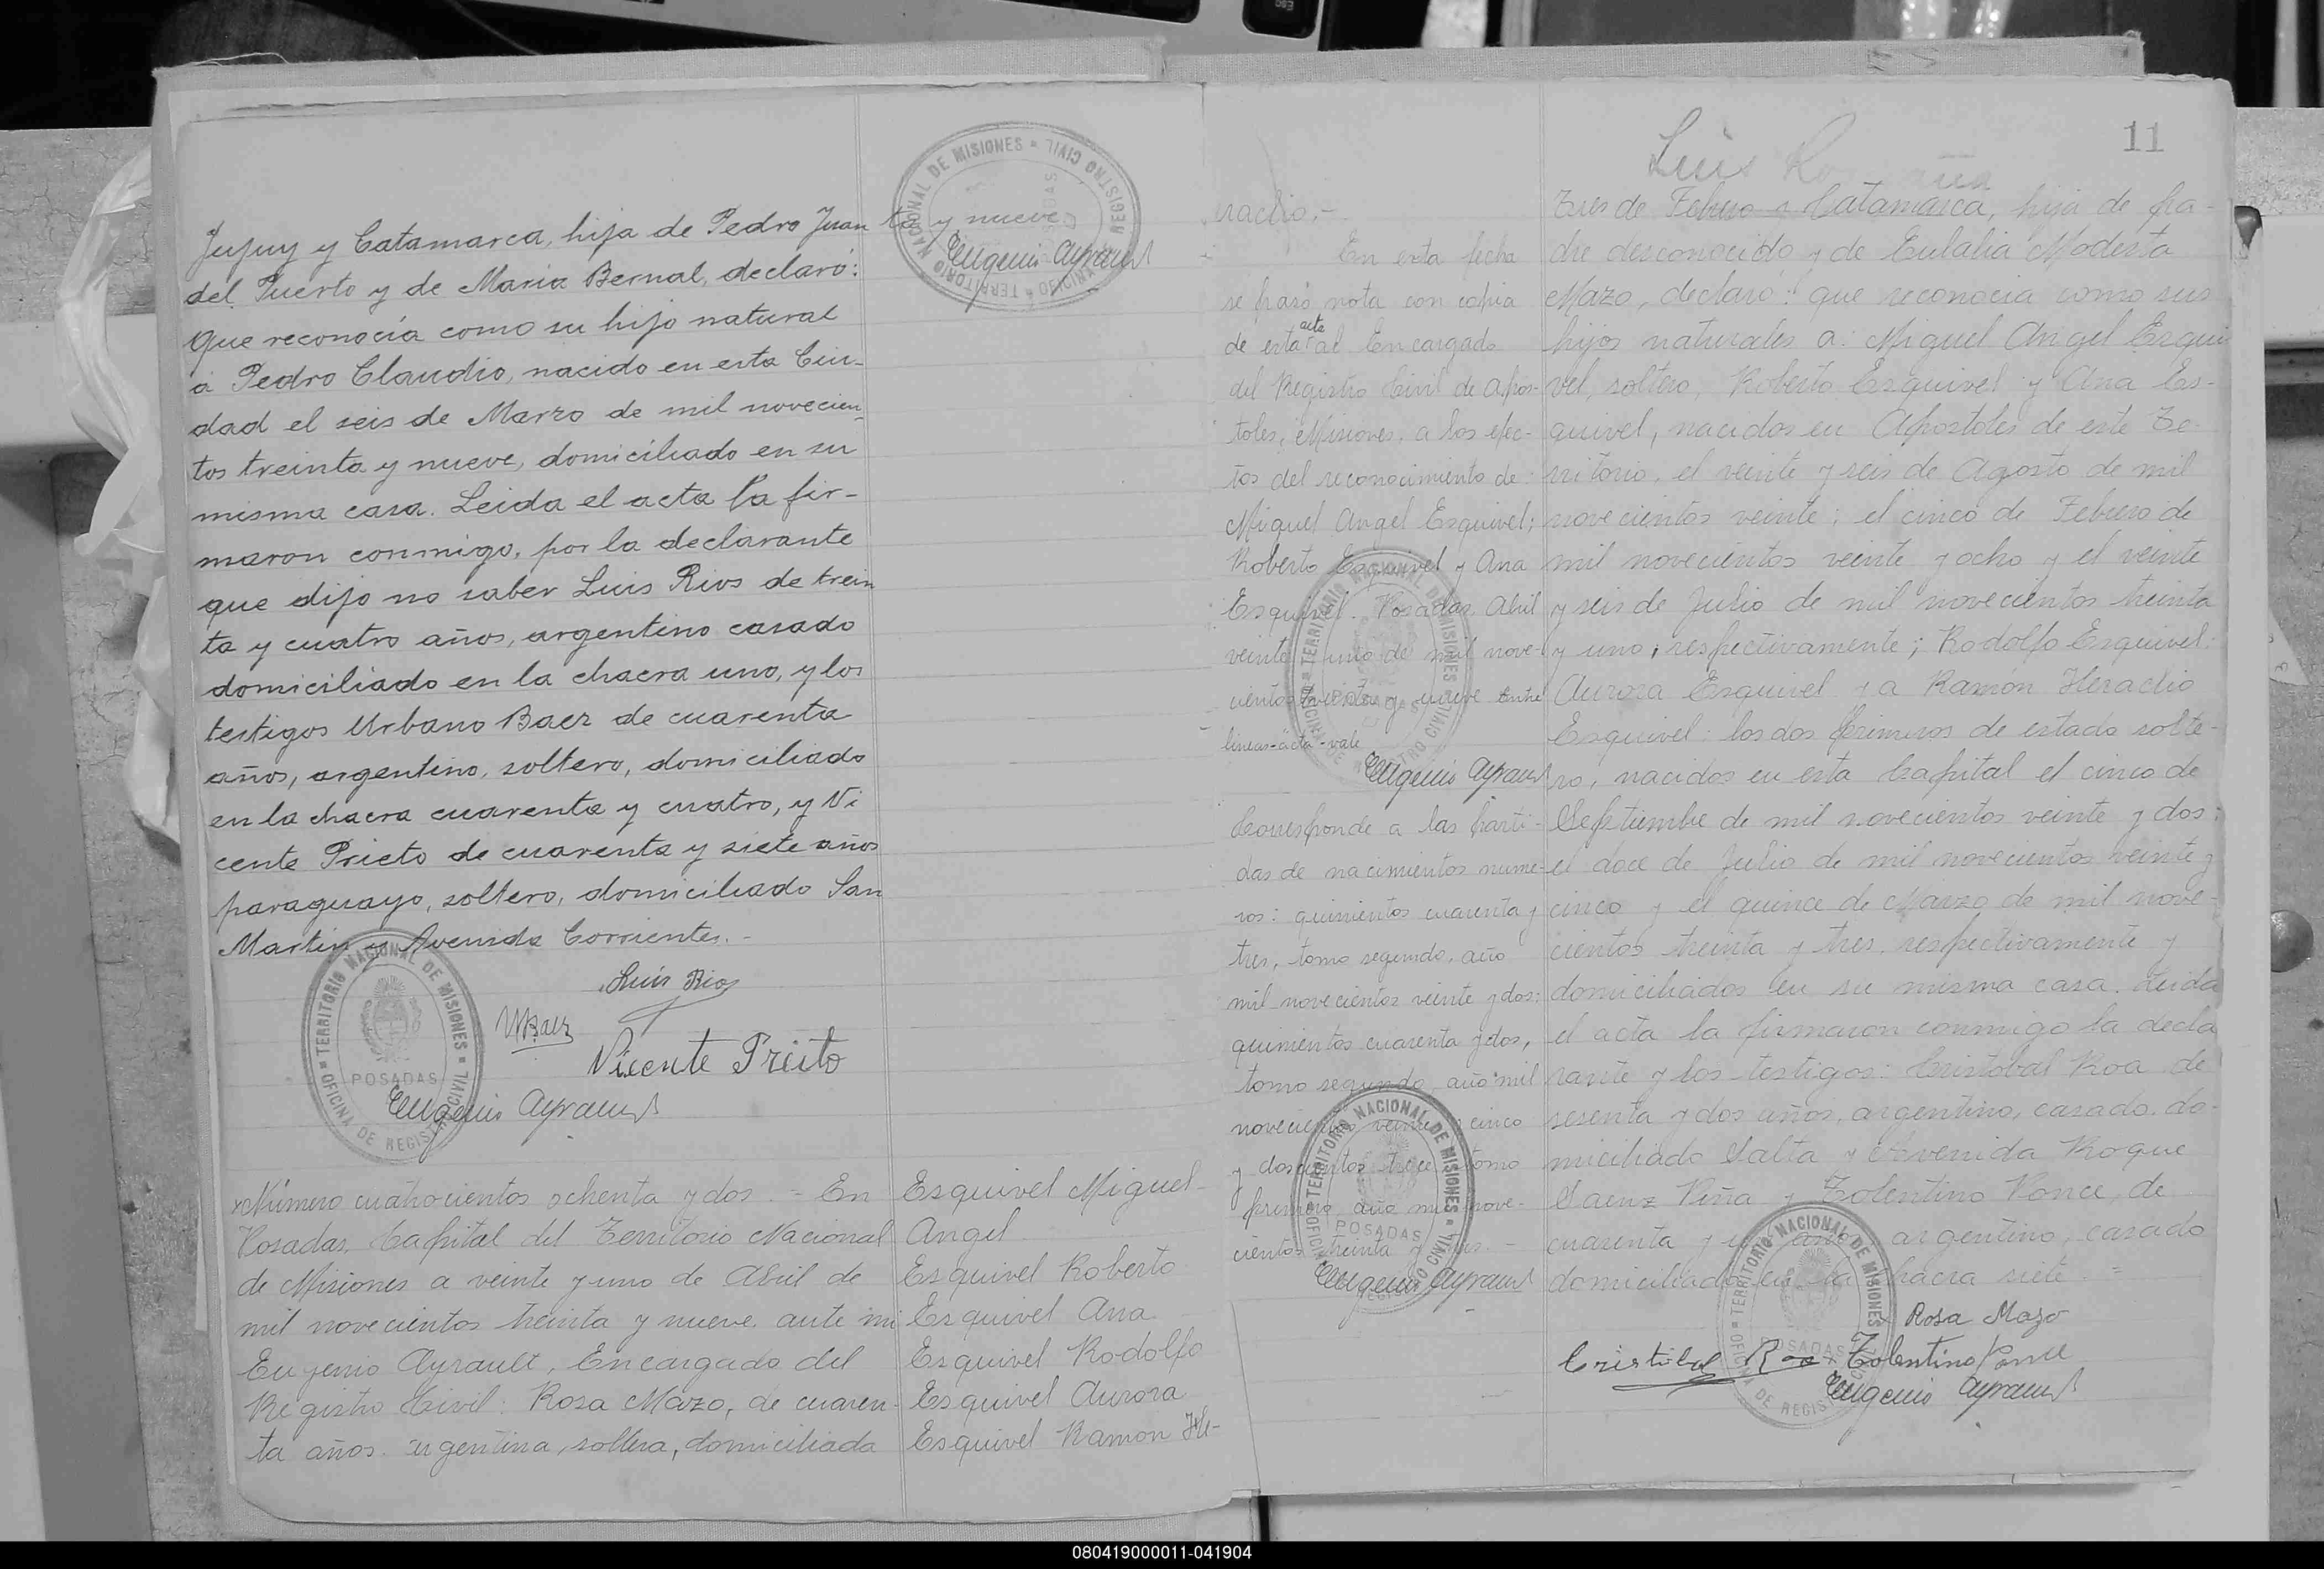 Jujuy y Catamarca, hija de Pedro Juan
del Puerto y de Maria Bernal, declaró:
Que reconocía como su hijo natural
a Pedro Claudio, nacido en esta Ciu-
dad el seis de Marzo de mil novecien-
tos treinta y nueve, domiciliado en su
misma casa. Leida el acta la fir-
maron conmigo, por la declarante
que dijo no saber Luis Rios de trein
ta y cuatro años, argentino casado
domiciliado en la chacra uno, y los
testigos Urbano Baez de cuarenta
años, argentino, soltero, domiciliado
en la chacra cuarenta y cuatro, y Vi
cente Prieto de cuarenta y siete años
paraguayo, soltero, domiciliado San
Martin y Avenida Corrientes.-
Luis Rios
UBaez
Vicente Prieto
Eugenio Ayrault
TERRITORIO NACIONAL DE MISIONES
POSADAS
OFICINA DE REGISTRO CIVIL
ta y nueve
Eugenio Ayrault
TERRITORIO NACIONAL DE MISIONES
REGISTRO CIVIL
Número cuatrocientos ochenta y dos.- En
Posadas, Capital del Territorio Nacional
de Misiones a veinte y uno de Abril de
mil novecientos treinta y nueve, ante mi
Eugenio Ayrault, Encargado del
Registro Civil: Rosa Mazo, de cuaren-
ta años, argentina, soltera, domiciliada
Esquivel Miguel
Angel
Esquivel Roberto
Esquivel Ana
Esquivel Rodolfo
Esquivel Aurora
Esquivel Ramon He-
11
Luis
raclio.-
En esta fecha
se pasó nota con copia
de esta acta al Encargado
del Registro Civil de Apos-
toles, Misiones, a los efec-
tos del reconocimiento de:
Miguel Angel Esquivel;
Roberto Esquivel y Ana
Esquivel. Posadas, Abril
veinte y uno de mil nove-
cientos treinta y nueve Entre
lineas-acta-vale
Eugenio Ayrault
TERRITORIO NACIONAL DE MISIONES
POSADAS
OFICINA DE REGISTRO CIVIL
Corresponde a las parti-
das de nacimientos nume-
ros: quinientos cuarenta y
tres, tomo segundo, año
mil novecientos veinte y dos:
quinientos cuarenta y dos,
tomo segundo, año mil
novecientos veinte y cinco
y doscientos trece, tomo
primero, año mil nove-
cientos treinta y tres.-
Eugenio Ayrault
TERRITORIO NACIONAL DE MISIONES
POSADAS
OFICINA DE REGISTRO CIVIL
Tres de Febrero y Catamarca, hija de pa-
dre desconocido y de Eulalia Modesta
Mazo, declaró: que reconocia como sus
hijos naturales a: Miguel Angel Esqui
vel, soltero, Roberto Esquivel y Ana Es-
quivel, nacidos en Apostoles de este Te-
rritorio, el veinte y seis de Agosto de mil
novecientos veinte; el cinco de Febrero de
mil novecientos veinte y ocho y el veinte
y seis de Julio de mil novecientos treinta
y uno, respectivamente; Rodolfo Esquivel:
Aurora Esquivel y a Ramon Heraclio
Esquivel: los dos primeros de estado solte-
ro, nacidos en esta Capital el cinco de
Septiembre de mil novecientos veinte y dos;
el doce de Julio de mil novecientos veinte y
cinco y el quince de Marzo de mil nove-
cientos treinta y tres, respectivamente y
domiciliados en su misma casa. Leida
el acta la firmaron conmigo la decla
rante y los testigos: Cristobal Roa de
sesenta y dos años, argentino, casado, do-
miciliado Salta y Avenida Roque
Saenz Peña y Tolentino Ponce, de
cuarenta y un años, argentino, casado
domiciliado en la chacra siete.=
Rosa Mazo
Cristóbal Roa
Tolentino Ponce
Eugenio Ayrault
TERRITORIO NACIONAL DE MISIONES
POSADAS
OFICINA DE REGISTRO CIVIL
080419000011-041904